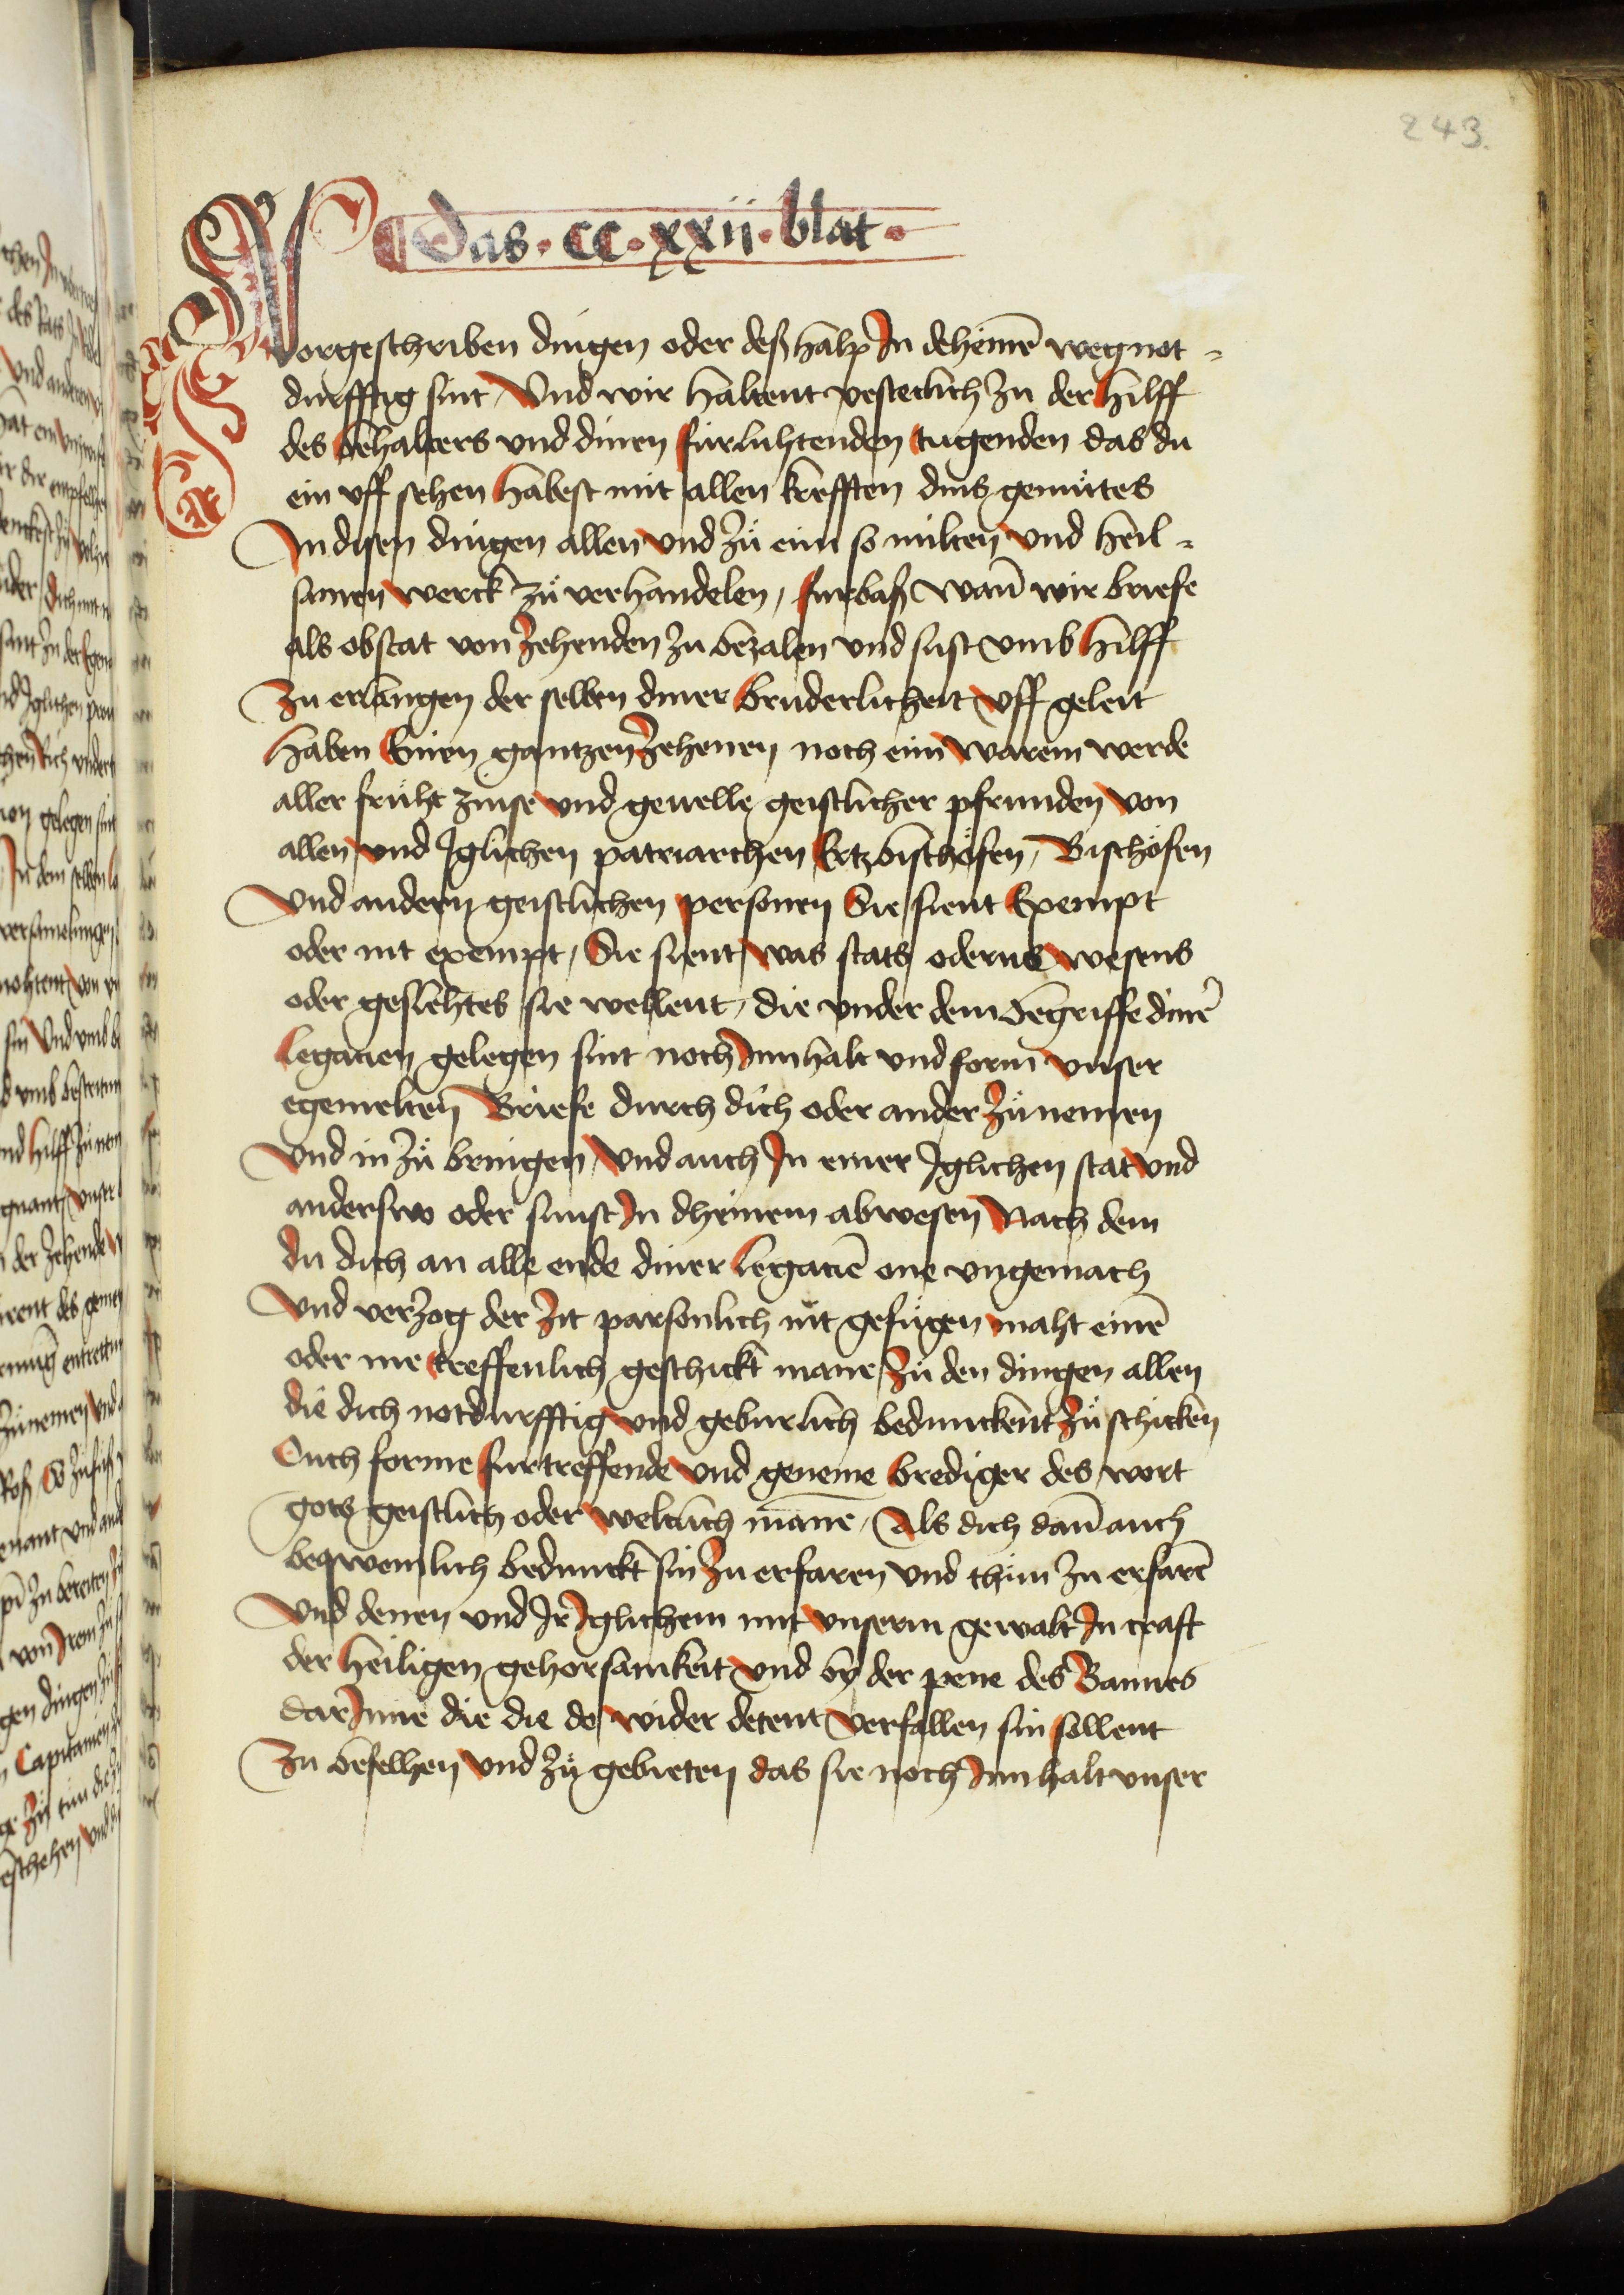 243.
Das · cc · xxii · blat ·
Vorgeschriben dingen oder deß halp In deheinē weg not-
durfftig sint / Und wir haltent vesteclich zu der hilff
des behalters und dinen fürluhtenden tugenden das du
ein uff sehen habest mit allen krefften dins gemütes
In disen dingen allen und zü eim so milten und heil-
samen werck zü verhandelen / furbaß wan̄ wir briefe
als obstat von zehenden zu bezalen und sust umb hilff
zu erlangen der selben diner bruderlicheit uff geleit
haben Einen gantzen zehenen noch eim warem werde
aller früht zinse und gevelle geistlicher pfrunden von
allen und Iglichen patriarchen Ertzbischöfen / Bischöfen
Und andern geistlichen personen Sie sient Exempt
oder nit exempt / Sie sient was stats odern wesens
oder geslehtes sie wellent / die under dem begriffe dinē
legacien gelegen sint noch Innhalt und form unser
egemelten Briefe durch dich oder ander zü nemen
Und in zü bringen / Und auch In einer Iglichen stat und
anderswo oder sunst In dheinem abwesen Nach dem
du dich an alle ende diner legaciē one ungemach
Und verzog der zit parsonlich nit gefügen maht einē
oder me treffenlich geschickt mane / zü den dingen allen
die dich notdurfftig und geburlich bedunckent zü schicken
Ouch forme furtreffende und geneme brediger des wort
gots geistlich oder weltlich mane / Als dich dan̄ auch
beqwemlich bedunckt sin zu erfaren und thün zu erfarē
Und denen und Ir Iglichem mit unserm gewalt In craft
der heiligen gehorsamkeit und by der pene des Bannes
dar Inne die die do wider detent verfallen sin sollent
Zu befelhen und zü gebieten das sie noch Innhalt unser